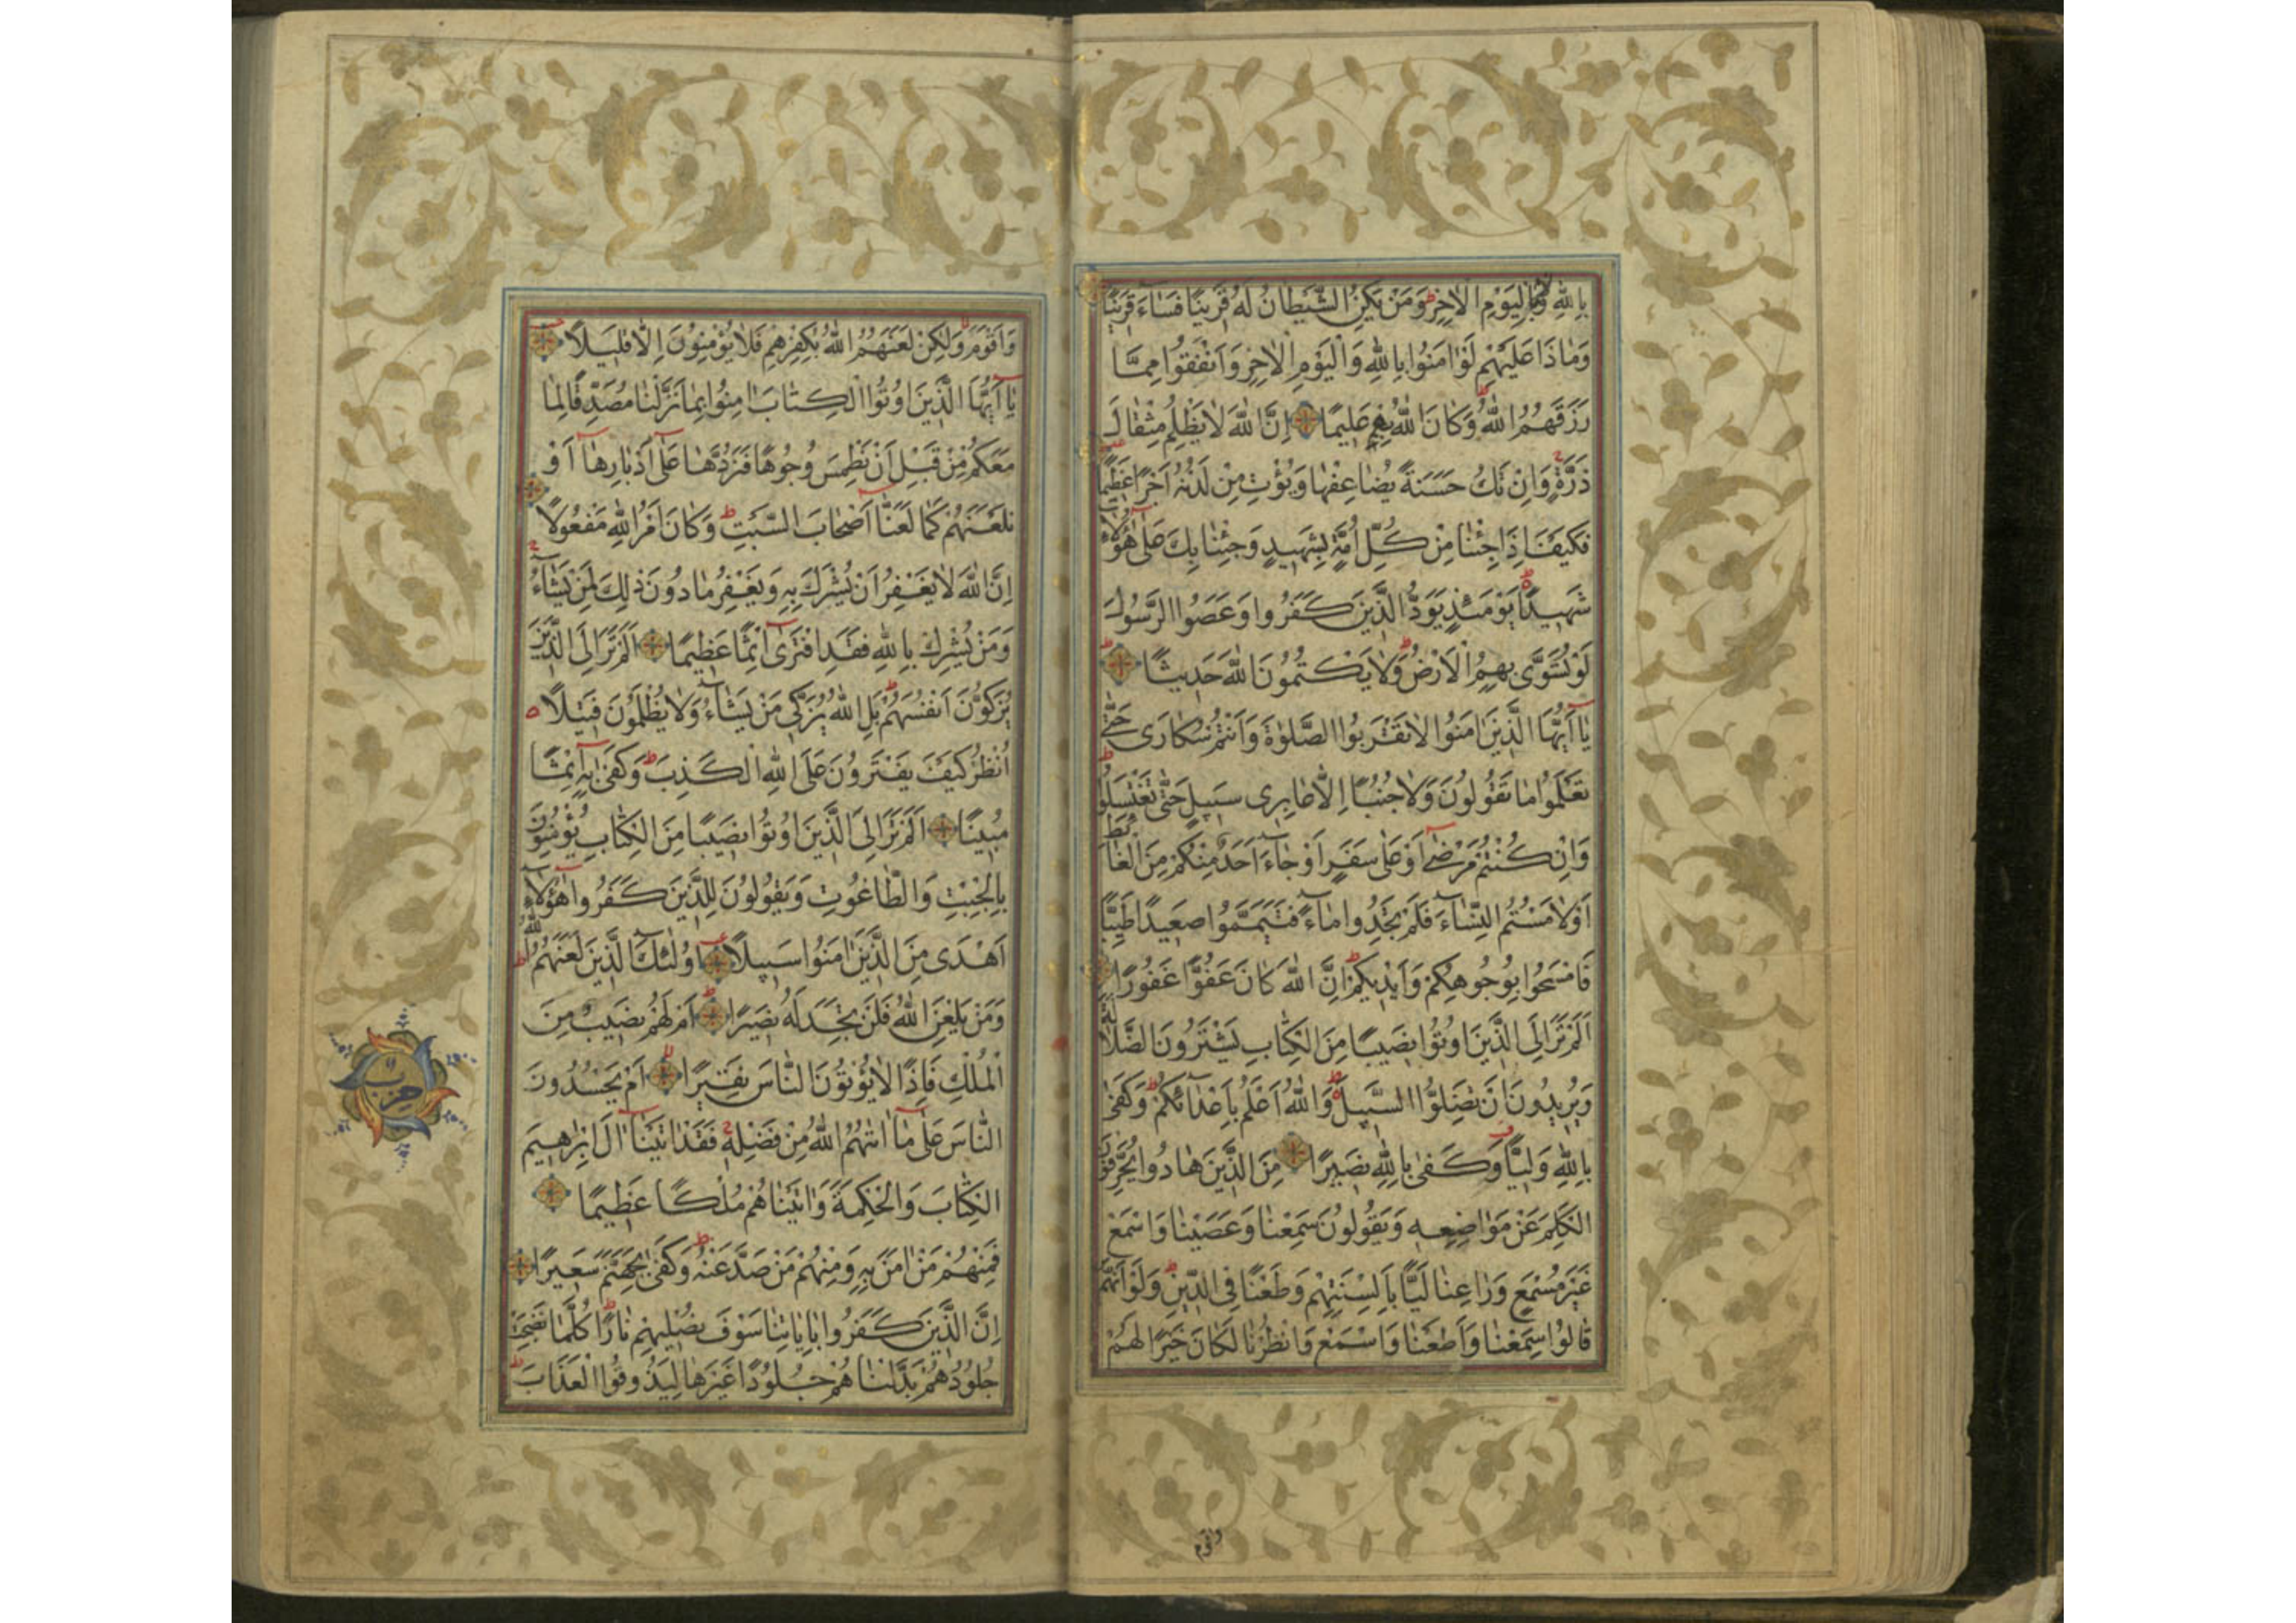 بِاللّٰهِ وَلَا بِالْيَوْمِ الْاٰخِرِ وَمَنْ يَكُنِ الشَّيْطَانُ لَهُ قَرِينًا فَسَاءَ قَرِينًا
وَمَاذَا عَلَيْهِمْ لَوْ اٰمَنُوا بِاللّٰهِ وَالْيَوْمِ الْاٰخِرِ وَاَنْفَقُوا مِمَّا
رَزَقَهُمُ اللّٰهُ وَكَانَ اللّٰهُ بِهِمْ عَلِيمًا اِنَّ اللّٰهَ لَا يَظْلِمُ مِثْقَالَ
ذَرَّةٍ وَاِنْ تَكُ حَسَنَةً يُضَاعِفْهَا وَيُؤْتِ مِنْ لَدُنْهُ اَجْرًا عَظِيمًا
فَكَيْفَ اِذَا جِئْنَا مِنْ كُلِّ اُمَّةٍ بِشَهِيدٍ وَجِئْنَا بِكَ عَلٰى هٰؤُلَاءِ
شَهِيدًا يَوْمَئِذٍ يَوَدُّ الَّذِينَ كَفَرُوا وَعَصَوُا الرَّسُولَ
لَوْ تُسَوَّى بِهِمُ الْاَرْضُ وَلَا يَكْتُمُونَ اللّٰهَ حَدِيثًا
يَا اَيُّهَا الَّذِينَ اٰمَنُوا لَا تَقْرَبُوا الصَّلٰوةَ وَاَنْتُمْ سُكَارَى حَتّٰى
تَعْلَمُوا مَا تَقُولُونَ وَلَا جُنُبًا اِلَّا عَابِرِى سَبِيلٍ حَتّٰى تَغْتَسِلُوا
وَاِنْ كُنْتُمْ مَرْضٰى اَوْ عَلٰى سَفَرٍ اَوْ جَاءَ اَحَدٌ مِنْكُمْ مِنَ الْغَائِطِ
اَوْ لَامَسْتُمُ النِّسَاءَ فَلَمْ تَجِدُوا مَاءً فَتَيَمَّمُوا صَعِيدًا طَيِّبًا
فَامْسَحُوا بِوُجُوهِكُمْ وَاَيْدِيكُمْ اِنَّ اللّٰهَ كَانَ عَفُوًّا غَفُورًا
اَلَمْ تَرَ اِلَى الَّذِينَ اُوتُوا نَصِيبًا مِنَ الْكِتَابِ يَشْتَرُونَ الضَّلَالَةَ
وَيُرِيدُونَ اَنْ تَضِلُّوا السَّبِيلَ وَاللّٰهُ اَعْلَمُ بِاَعْدَائِكُمْ وَكَفٰى
بِاللّٰهِ وَلِيًّا وَكَفٰى بِاللّٰهِ نَصِيرًا مِنَ الَّذِينَ هَادُوا يُحَرِّفُونَ
الْكَلِمَ عَنْ مَوَاضِعِهِ وَيَقُولُونَ سَمِعْنَا وَعَصَيْنَا وَاسْمَعْ
غَيْرَ مُسْمَعٍ وَرَاعِنَا لَيًّا بِاَلْسِنَتِهِمْ وَطَعْنًا فِى الدِّينِ وَلَوْ اَنَّهُمْ
قَالُوا سَمِعْنَا وَاَطَعْنَا وَاسْمَعْ وَانْظُرْنَا لَكَانَ خَيْرًا لَهُمْ
واقوم
وَاَقْوَمَ وَلٰكِنْ لَعَنَهُمُ اللّٰهُ بِكُفْرِهِمْ فَلَا يُؤْمِنُونَ اِلَّا قَلِيلًا
يَا اَيُّهَا الَّذِينَ اُوتُوا الْكِتَابَ اٰمِنُوا بِمَا نَزَّلْنَا مُصَدِّقًا لِمَا
مَعَكُمْ مِنْ قَبْلِ اَنْ نَطْمِسَ وُجُوهًا فَنَرُدَّهَا عَلٰى اَدْبَارِهَا اَوْ
نَلْعَنَهُمْ كَمَا لَعَنَّا اَصْحَابَ السَّبْتِ وَكَانَ اَمْرُ اللّٰهِ مَفْعُولًا
اِنَّ اللّٰهَ لَا يَغْفِرُ اَنْ يُشْرَكَ بِهِ وَيَغْفِرُ مَا دُونَ ذٰلِكَ لِمَنْ يَشَاءُ
وَمَنْ يُشْرِكْ بِاللّٰهِ فَقَدِ افْتَرٰى اِثْمًا عَظِيمًا اَلَمْ تَرَ اِلَى الَّذِينَ
يُزَكُّونَ اَنْفُسَهُمْ بَلِ اللّٰهُ يُزَكِّى مَنْ يَشَاءُ وَلَا يُظْلَمُونَ فَتِيلًا
اُنْظُرْ كَيْفَ يَفْتَرُونَ عَلَى اللّٰهِ الْكَذِبَ وَكَفٰى بِهِ اِثْمًا
مُبِينًا اَلَمْ تَرَ اِلَى الَّذِينَ اُوتُوا نَصِيبًا مِنَ الْكِتَابِ يُؤْمِنُونَ
بِالْجِبْتِ وَالطَّاغُوتِ وَيَقُولُونَ لِلَّذِينَ كَفَرُوا هٰؤُلَاءِ
اَهْدَى مِنَ الَّذِينَ اٰمَنُوا سَبِيلًا اُولٰئِكَ الَّذِينَ لَعَنَهُمُ اللّٰهُ
وَمَنْ يَلْعَنِ اللّٰهُ فَلَنْ تَجِدَ لَهُ نَصِيرًا اَمْ لَهُمْ نَصِيبٌ مِنَ
الْمُلْكِ فَاِذًا لَا يُؤْتُونَ النَّاسَ نَقِيرًا اَمْ يَحْسُدُونَ
النَّاسَ عَلٰى مَا اٰتٰهُمُ اللّٰهُ مِنْ فَضْلِهِ فَقَدْ اٰتَيْنَا اٰلَ اِبْرٰهِيمَ
الْكِتَابَ وَالْحِكْمَةَ وَاٰتَيْنَاهُمْ مُلْكًا عَظِيمًا
فَمِنْهُمْ مَنْ اٰمَنَ بِهِ وَمِنْهُمْ مَنْ صَدَّ عَنْهُ وَكَفٰى بِجَهَنَّمَ سَعِيرًا
اِنَّ الَّذِينَ كَفَرُوا بِاٰيَاتِنَا سَوْفَ نُصْلِيهِمْ نَارًا كُلَّمَا نَضِجَتْ
جُلُودُهُمْ بَدَّلْنَاهُمْ جُلُودًا غَيْرَهَا لِيَذُوقُوا الْعَذَابَ
حزب